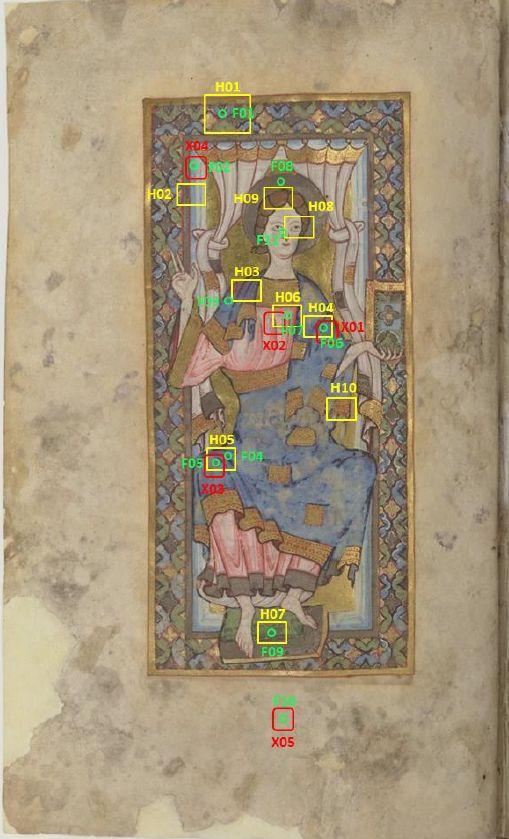 H01
F01
X04
F02
F08
H02
H09
H08
F11
H03
F03
H06
H04
F07
X01
F06
X02
H10
H05
F04
F05
X03
H07
F09
F10
X05